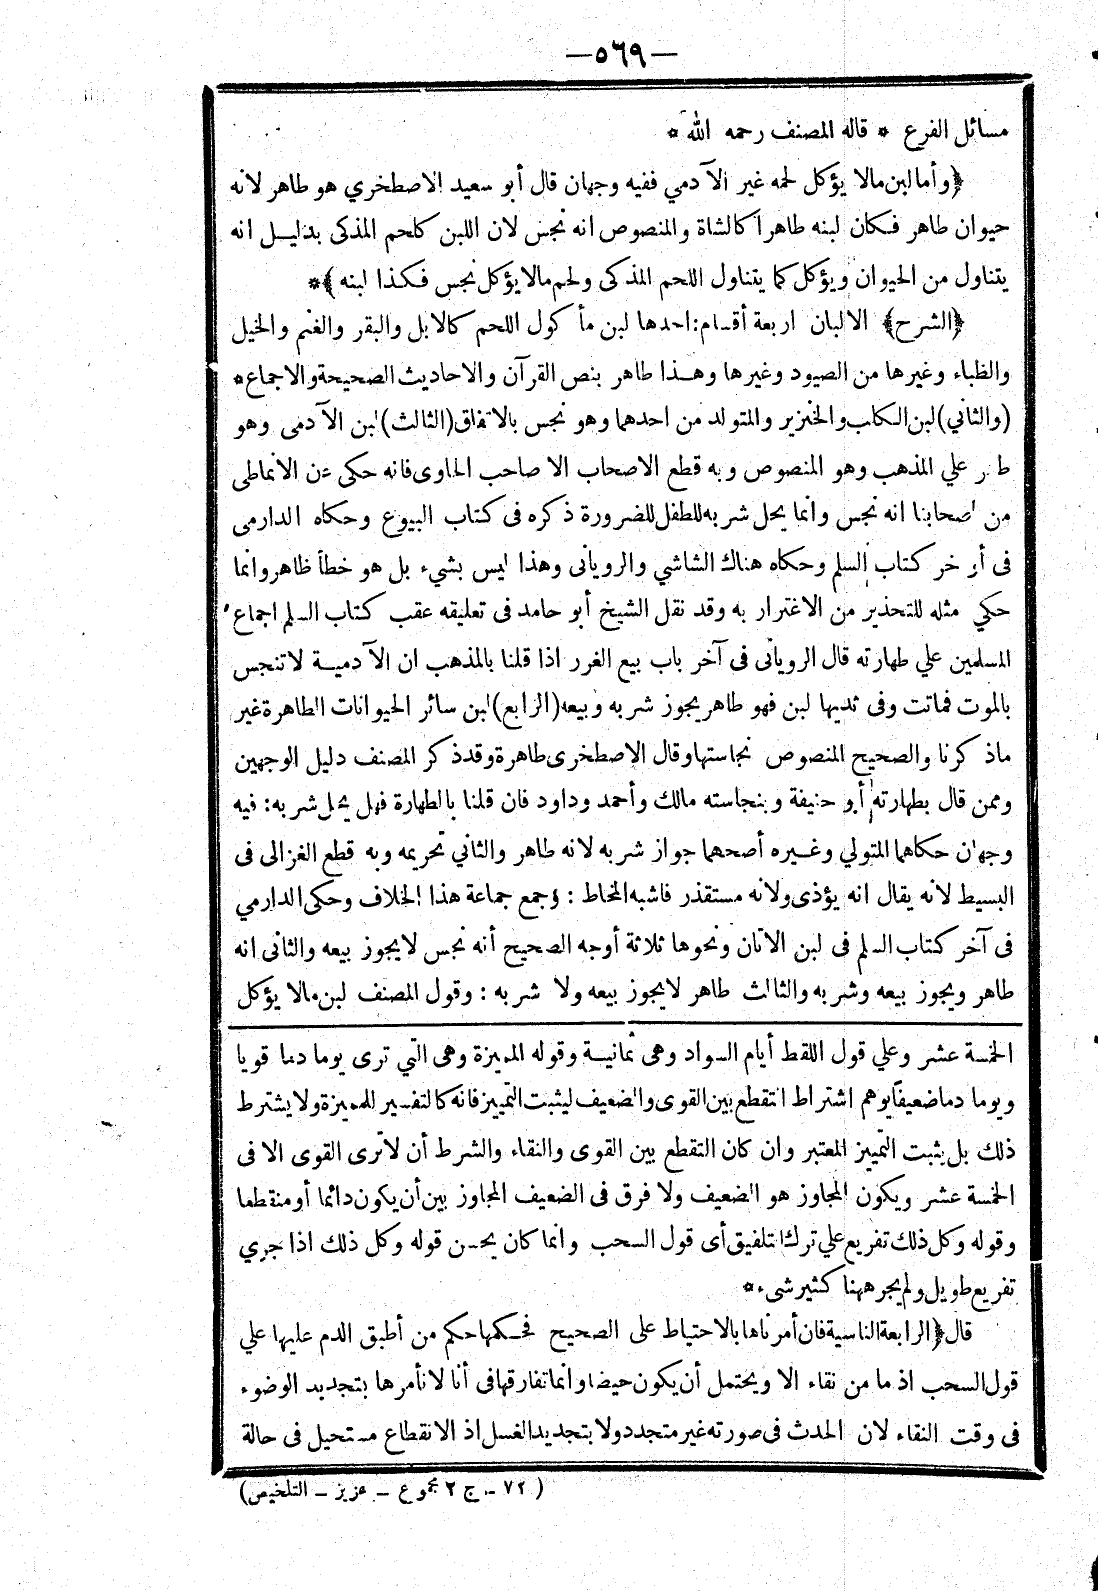 —٥٦٩—
مسائل الفرع * قاله المصنف رحمه الله *
﴿وأما لبن مالا يؤكل لحمه غير الآدمي ففيه وجهان قال أبو سعيد الاصطخري هو طاهر لانه
حيوان طاهر فكان لبنه طاهرا كالشاة والمنصوص انه نجس لان اللبن كلحم المذكى بدليل انه
يتناول من الحيوان ويؤكل كما يتناول اللحم المذكى ولحم مالا يؤكل نجس فكذا لبنه﴾*
﴿الشرح﴾ الالبان اربعة أقسام: احدها لبن مأكول اللحم كالابل والبقر والغنم والخيل
والظباء وغيرها من الصيود وغيرها وهذا طاهر بنص القرآن والاحاديث الصحيحة والاجماع*
(والثاني) لبن الكلب والخنزير والمتولد من احدهما وهو نجس بالاتفاق (الثالث) لبن الآدمى وهو
طاهر علي المذهب وهو المنصوص وبه قطع الاصحاب الا صاحب الحاوى فانه حكى عن الانماطى
من اصحابنا انه نجس وانما يحل شربه للطفل للضرورة ذكره فى كتاب البيوع وحكاه الدارمى
فى أواخر كتاب السلم وحكاه هناك الشاشي والرويانى وهذا ليس بشيء بل هو خطأ ظاهر وانما
حكي مثله للتحذير من الاغترار به وقد نقل الشيخ أبو حامد فى تعليقه عقب كتاب السلم اجماع
المسلمين علي طهارته قال الرويانى فى آخر باب بيع الغرر اذا قلنا بالمذهب ان الآدمية لا تنجس
بالموت فماتت وفى ثديها لبن فهو طاهر يجوز شربه وبيعه (الرابع) لبن سائر الحيوانات الطاهرة غير
ماذكرنا والصحيح المنصوص نجاستها وقال الاصطخرى طاهرة وقد ذكر المصنف دليل الوجهين
وممن قال بطهارته أبو حنيفة وبنجاسته مالك وأحمد وداود فان قلنا بالطهارة فهل يحل شربه: فيه
وجهان حكاهما المتولي وغيره أصحهما جواز شربه لانه طاهر والثاني تحريمه وبه قطع الغزالى فى
البسيط لانه يقال انه يؤذى ولانه مستقذر فاشبه المخاط: وجمع جماعة هذا الخلاف وحكى الدارمي
فى آخر كتاب السلم فى لبن الاتان ونحوها ثلاثة أوجه الصحيح أنه نجس لا يجوز بيعه والثانى انه
طاهر ويجوز بيعه وشربه والثالث طاهر لا يجوز بيعه ولا شربه: وقول المصنف لبن مالا يؤكل
الخمسة عشر وعلي قول اللقط أيام السواد وهى ثمانية وقوله المميزة وهى التي ترى يوما دما قويا
ويوما دما ضعيفا يوهم اشتراط التقطع بين القوى والضعيف ليثبت التمييز فانه كالتفسير للمميزة ولا يشترط
ذلك بل يثبت التمييز المعتبر وان كان التقطع بين القوى والنقاء والشرط أن لا ترى القوى الا فى
الخمسة عشر ويكون المجاوز هو الضعيف ولا فرق فى الضعيف المجاوز بين أن يكون دائما أو منقطعا
وقوله وكل ذلك تفريع علي ترك التلفيق أى قول السحب وانما كان يحسن قوله وكل ذلك اذا جري
تفريع طويل ولم يجر ههنا كثير شىء*
قال ﴿الرابعة الناسية فان أمرناها بالاحتياط على الصحيح فحكمها حكم من أطبق الدم عليها علي
قول السحب اذ ما من نقاء الا ويحتمل أن يكون حيضا وانما تفارقها فى أنا لا نأمرها بتجديد الوضوء
فى وقت النقاء لان الحدث فى صورته غير متجدد ولا بتجديد الغسل اذ الانقطاع مستحيل فى حالة
(٧٢ – ج ٢ مجموع – عزيز – التلخيص)